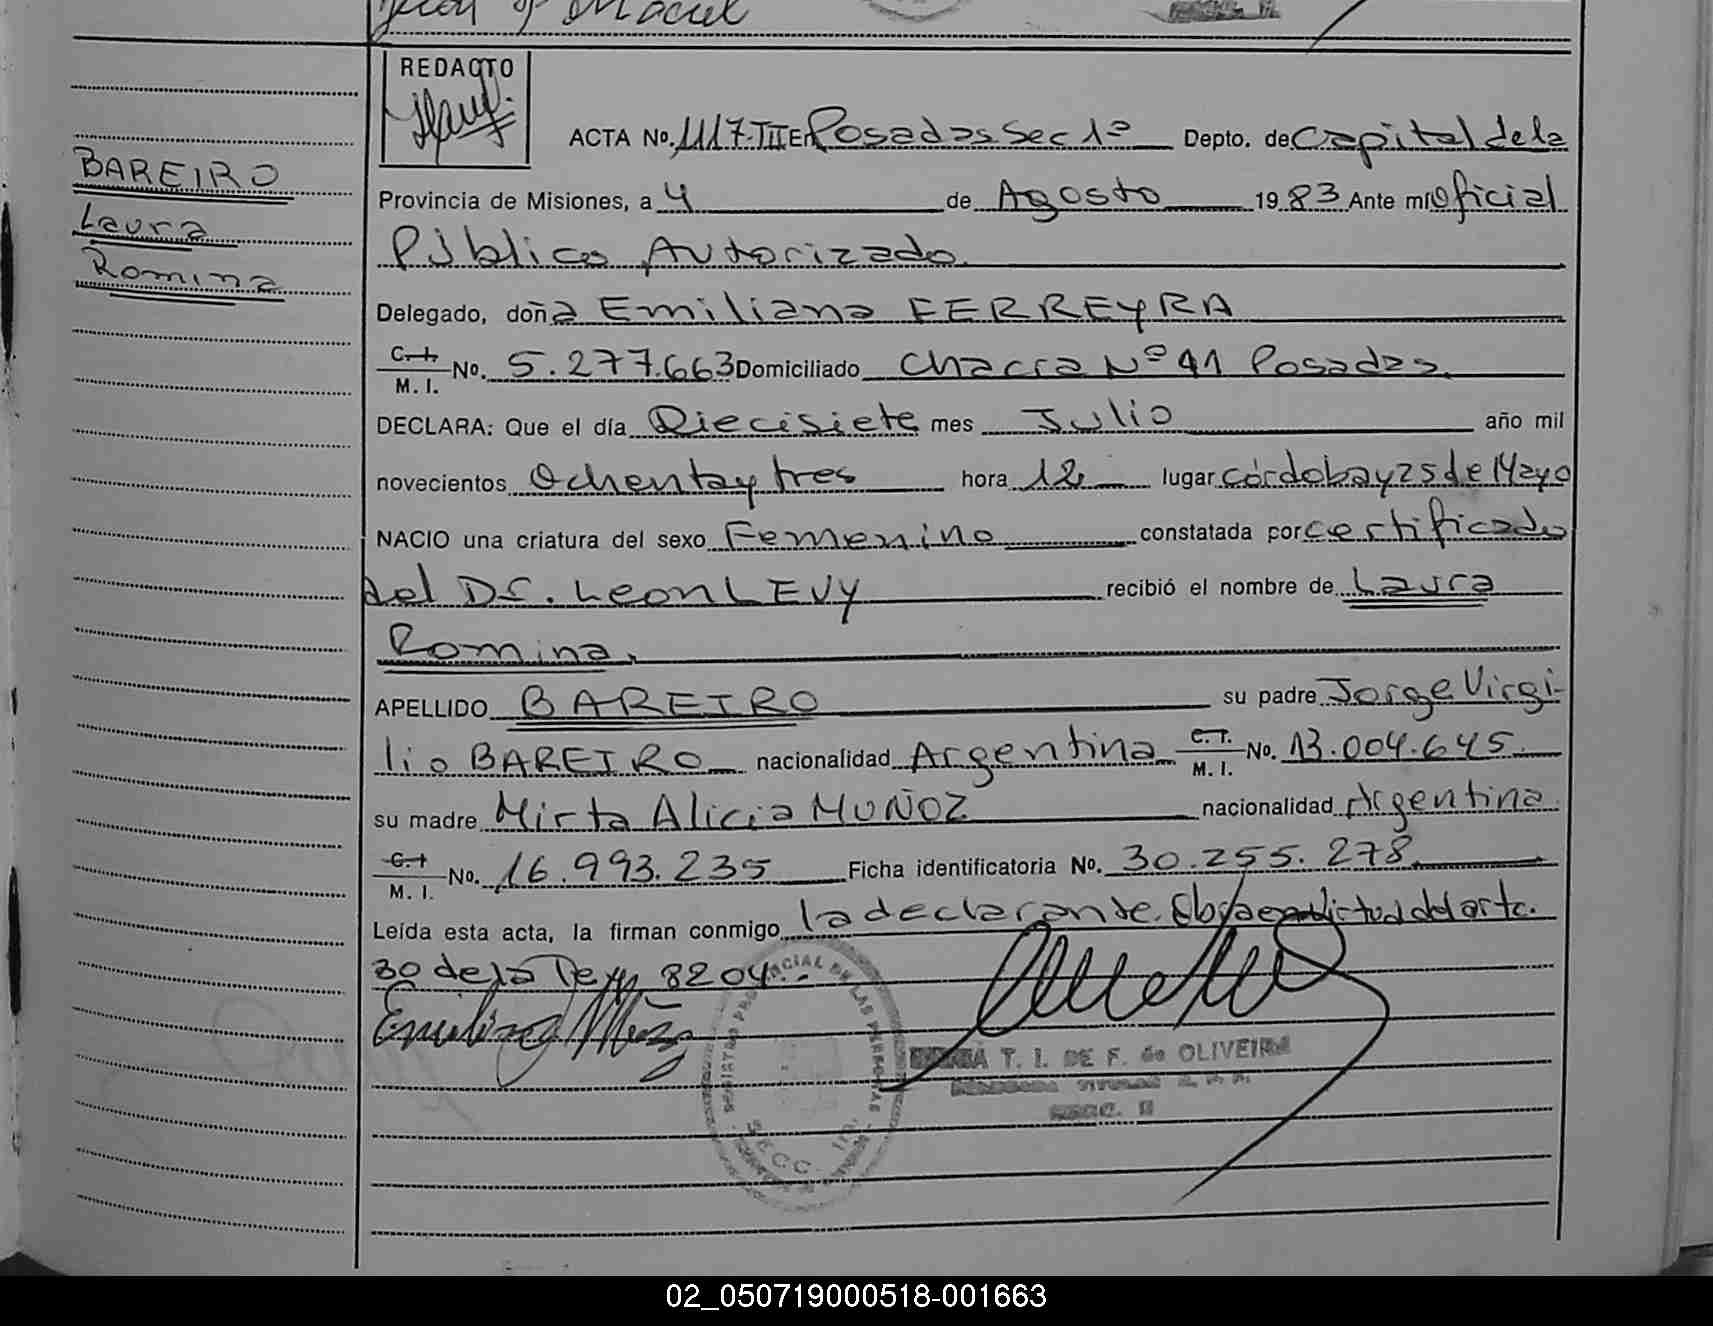 REDACTO
ACTA No. 1117-TII EN Posadas Sec 1ª Depto. de Capital de la
BAREIRO
Laura
Romina
Provincia de Misiones, a 4 de Agosto 1983 Ante mí Oficial
Público Autorizado.
Delegado, doña Emiliana FERREYRA
C.I. M.I. No. 5.277.663 Domiciliado Chacra Nº 41 Posadas.
DECLARA: Que el día Diecisiete mes Julio año mil
novecientos Ochenta y tres hora 12 lugar Córdoba y 25 de Mayo
NACIO una criatura del sexo Femenino constatada por certificado
del Dr. Leon LEVY recibió el nombre de Laura
Romina.
APELLIDO BAREIRO su padre Jorge Virgi-
lio BAREIRO nacionalidad Argentina C.I. M.I. No. 13.004.645.
su madre Mirta Alicia MUÑOZ nacionalidad Argentina
C.I. M.I. No. 16.993.235 Ficha identificatoria No. 30.255.278
Leída esta acta, la firman conmigo la declarante. Obra en virtud del artc.
30 de la Ley 8204.-
REGISTRO PROVINCIAL DE LAS PERSONAS
SECC. 1ra.
T. I. DE F. de OLIVEIRA
SECC. II
02_050719000518-001663